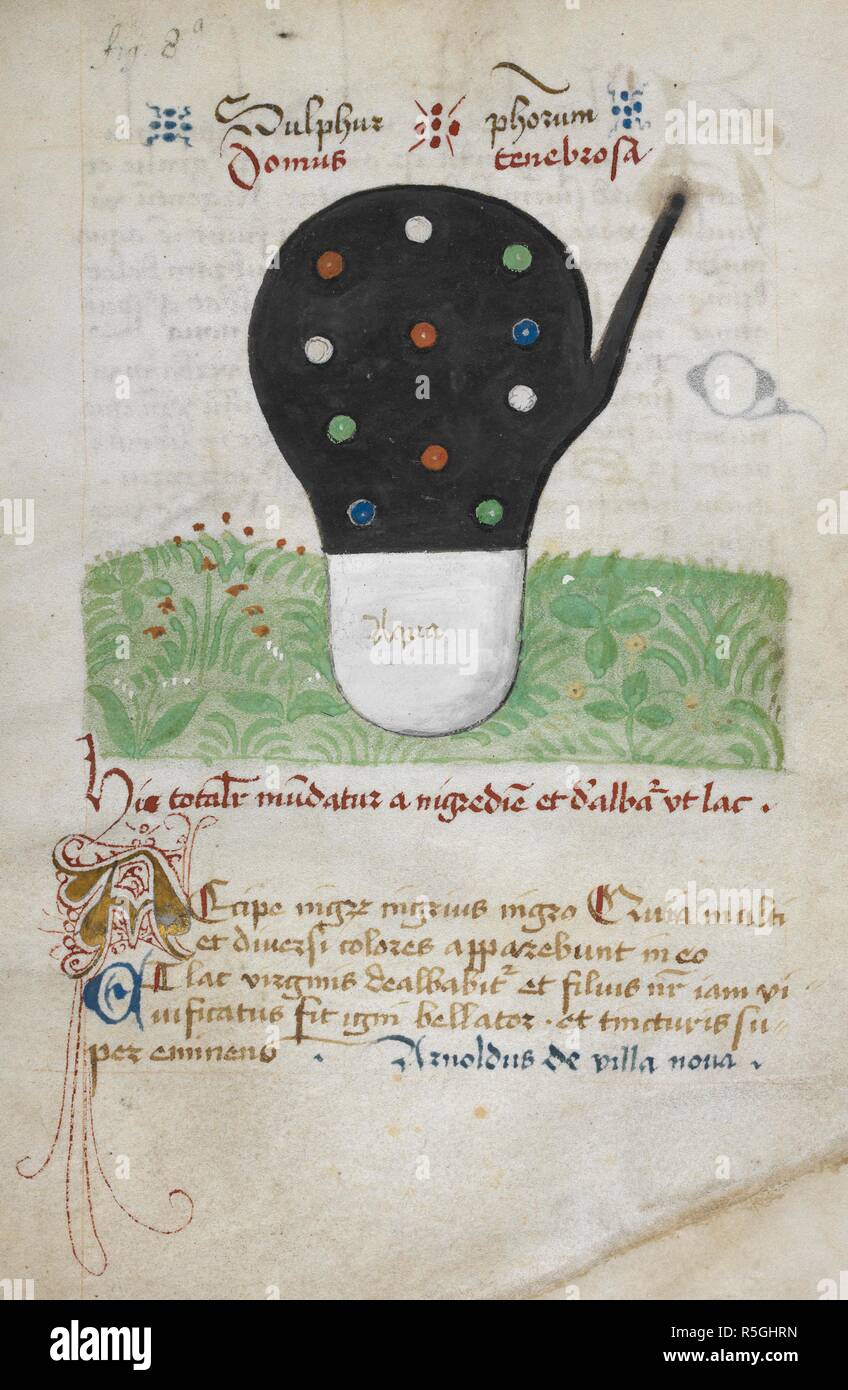 fig. 8ᵃ
Sulphur ph̄orum
Domus tenebrosa
Aqua
Hic totalr̄ mūdatur a nigrediē et d'albāt ut lac .
Accipe nigrū nigrius nigro Quia multi
et diversi colores apparebunt in eo
At lac virginis dealbabitr̄ et filius nr̄ iam vi
vificatus fit igni bellator . et tincturis su-
per eminens . Arnoldus de villa nova .
alamy
Image ID: R5GHRN
www.alamy.com